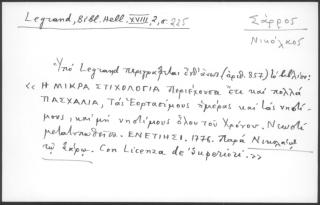 Legrand, Bibl. Hell. XVIII, 2, σ. 225
Σάρρος
Νικόλαος
Ὑπὸ Legrand περιγράφεται ἐνθ' ἄνω (ἀριθ. 857) τὸ βιβλίον:
« Η ΜΙΚΡΑ ΣΤΙΧΟΛΟΓΙΑ Περιέχουσα ἔτι καὶ πολλὰ
ΠΑΣΧΑΛΙΑ, Τὰς Ἑορτασίμους ἡμέρας καὶ τὰς νηστί-
μους, καὶ μὴ νηστίμους ὅλου τοῦ Χρόνου. Νεωστὶ
μετατυπωθεῖσα. ΕΝΕΤΙΗΣΙ. 1776. Παρὰ Νικολάῳ
τῷ Σάρῳ. Con Licenza de' Superiori. »